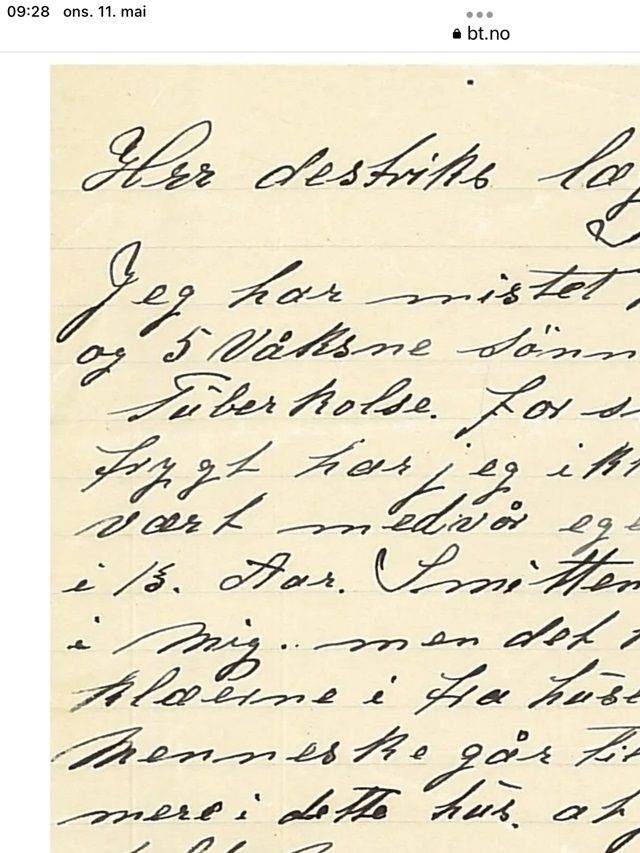 09:28 ons. 11. mai
bt.no
Herr destriks
Jeg har mistet
og 5 Våksne sönn
Tüberkolse. for s
frygt har jeg ikk
vært medvår ege
i 13. Aar. Smitten
i mig.. men det
klæerne i fra hüse
Menneske går til
mere i dette hüs. at